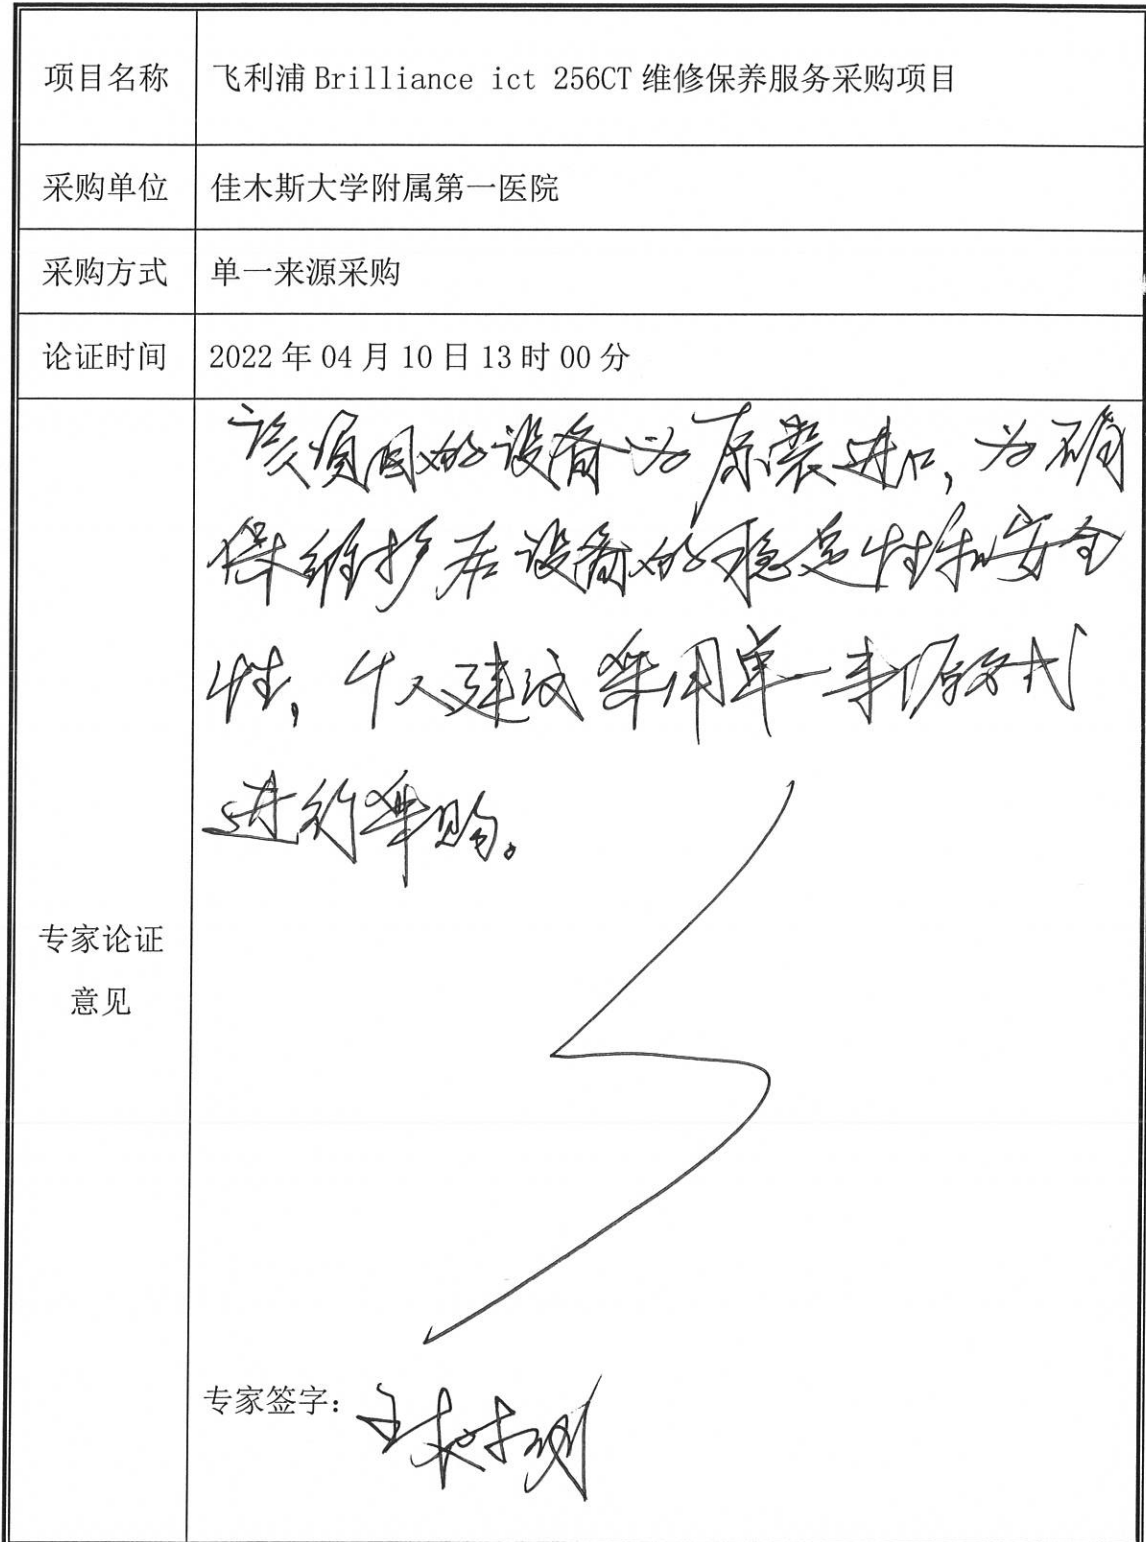 项目名称 飞利浦 Brilliance ict 256CT 维修保养服务采购项目
采购单位 佳木斯大学附属第一医院
采购方式 单一来源采购
论证时间 2022 年 04 月 10 日 13 时 00 分
该项目的设备为原装进口,为确
保维护后设备的稳定性和安全
性,个人建议采用单一来源方式
进行采购。
专家论证
意见
专家签字: